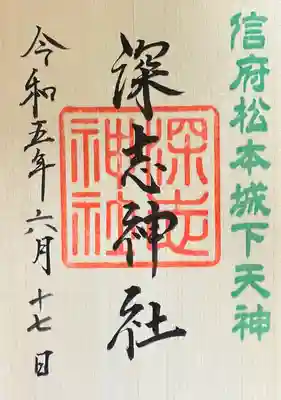 信府松本城下天神
深志神社
深志神社
令和五年六月十七日